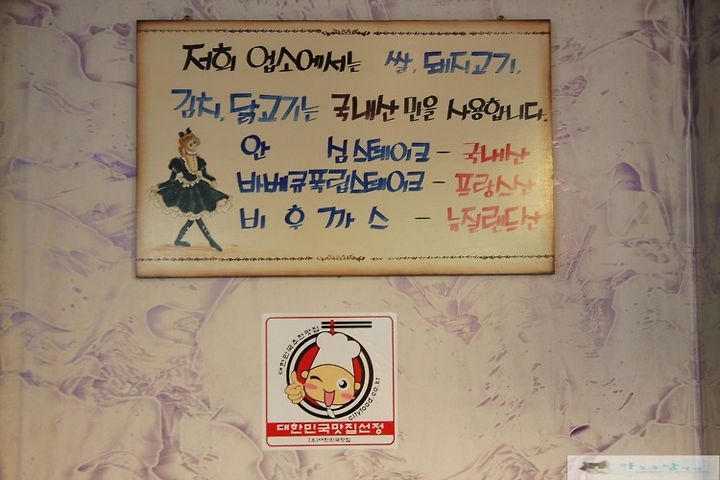 저희 업소에서는 쌀, 돼지고기,
김치, 닭고기는 국내산 만을 사용합니다.
안 심스테이크 - 국내산
바베큐폭립스테이크 - 프랑스산
비 후 까 스 - 뉴질랜드산
대한민국추천맛집
cityfood.co.kr
대한민국맛집선정
(주)대한민국맛집